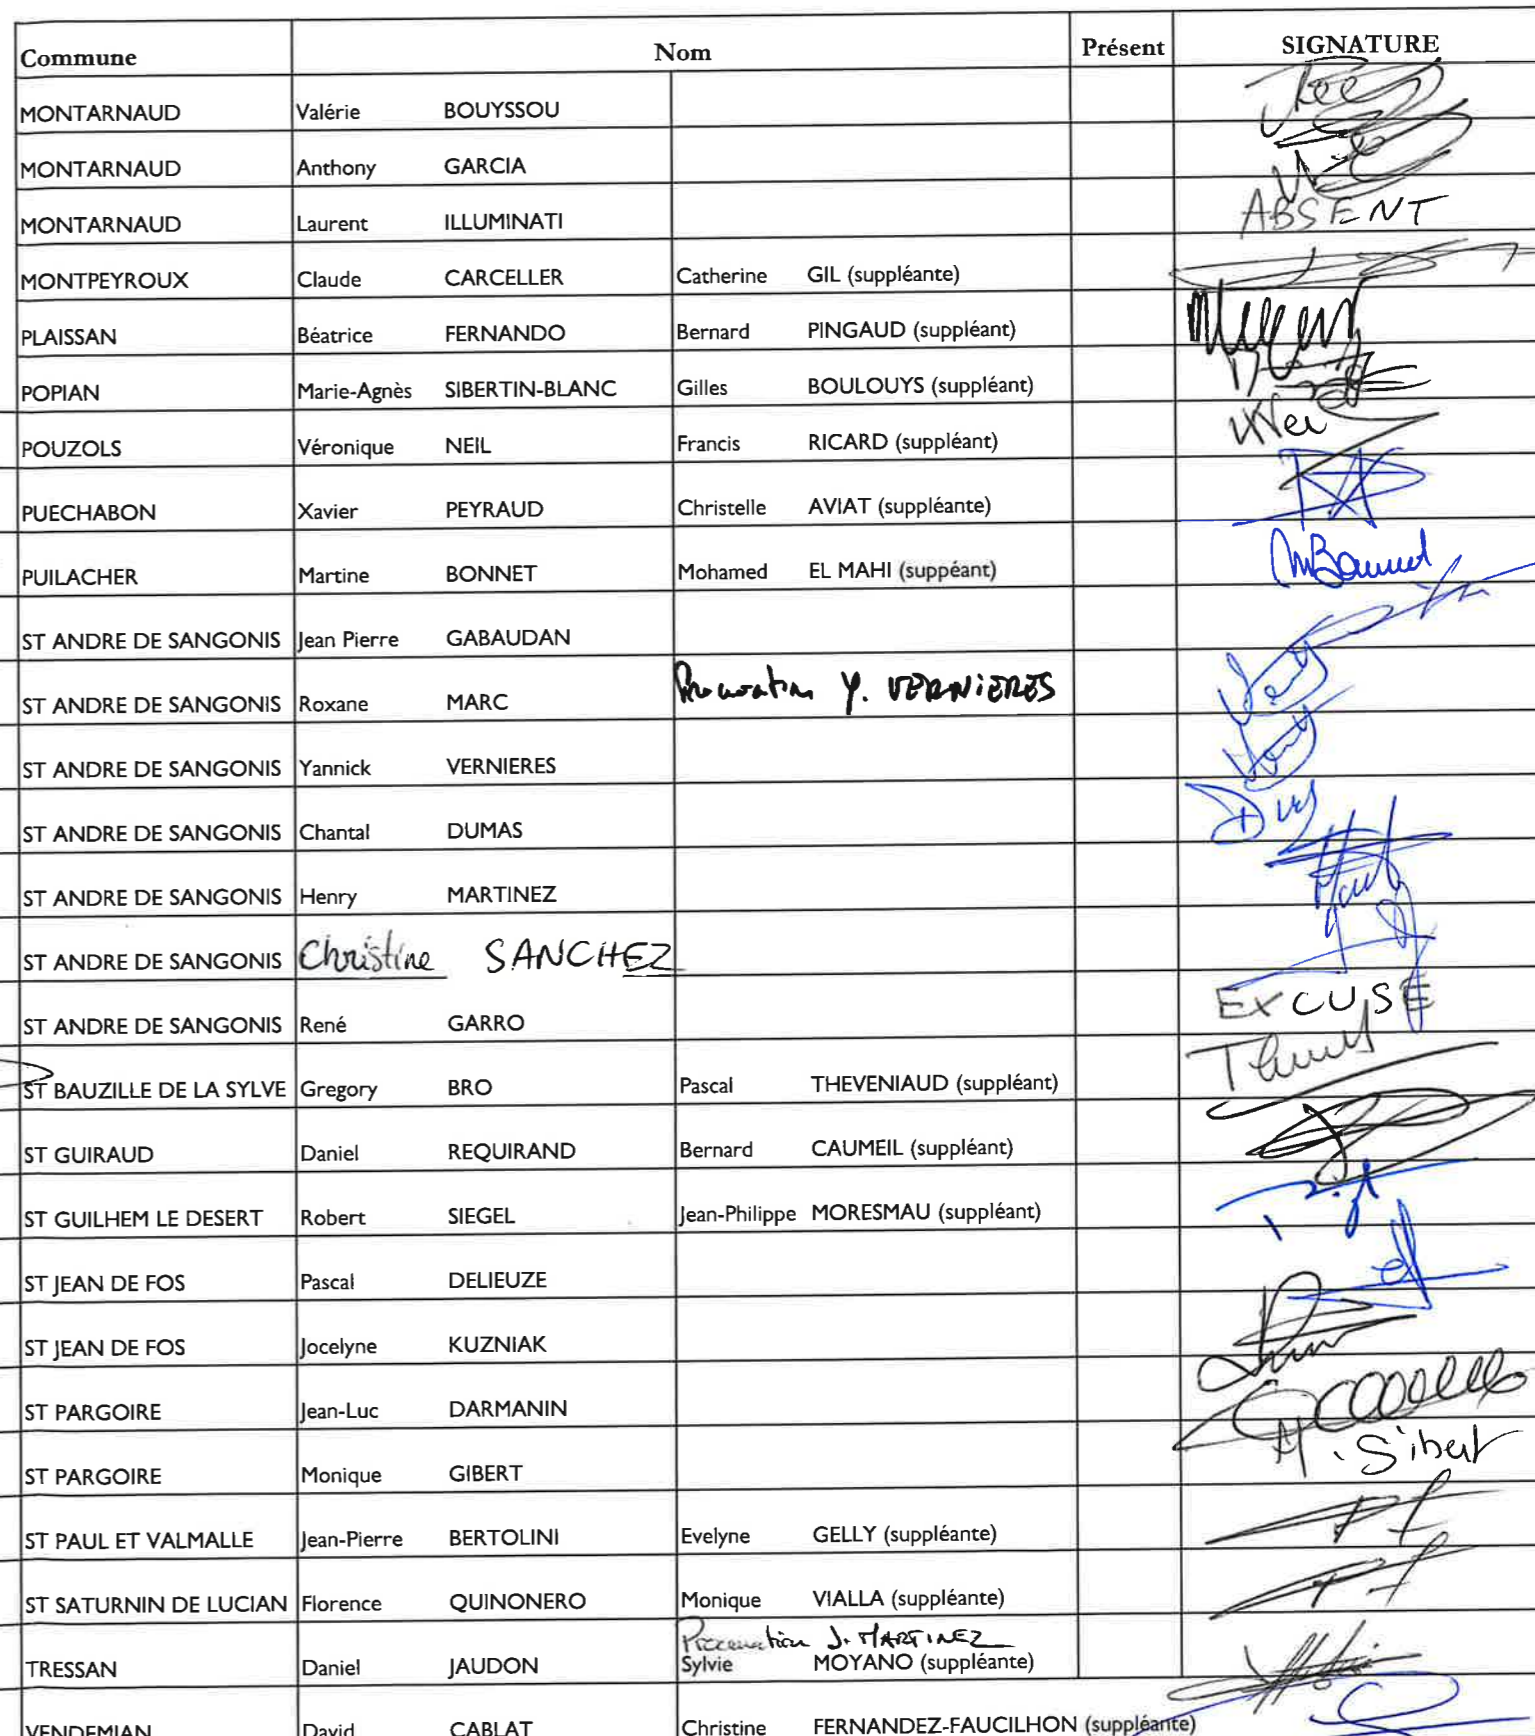 Commune Nom Présent SIGNATURE
MONTARNAUD Valérie BOUYSSOU
MONTARNAUD Anthony GARCIA
MONTARNAUD Laurent ILLUMINATI ABSENT
MONTPEYROUX Claude CARCELLER Catherine GIL (suppléante)
PLAISSAN Béatrice FERNANDO Bernard PINGAUD (suppléant)
POPIAN Marie-Agnès SIBERTIN-BLANC Gilles BOULOUYS (suppléant)
POUZOLS Véronique NEIL Francis RICARD (suppléant)
PUECHABON Xavier PEYRAUD Christelle AVIAT (suppléante)
PUILACHER Martine BONNET Mohamed EL MAHI (suppéant)
ST ANDRE DE SANGONIS Jean Pierre GABAUDAN
ST ANDRE DE SANGONIS Roxane MARC Procuration Y. VERNIERES
ST ANDRE DE SANGONIS Yannick VERNIERES
ST ANDRE DE SANGONIS Chantal DUMAS
ST ANDRE DE SANGONIS Henry MARTINEZ
ST ANDRE DE SANGONIS Christine SANCHEZ
ST ANDRE DE SANGONIS René GARRO EXCUSE
ST BAUZILLE DE LA SYLVE Gregory BRO Pascal THEVENIAUD (suppléant)
ST GUIRAUD Daniel REQUIRAND Bernard CAUMEIL (suppléant)
ST GUILHEM LE DESERT Robert SIEGEL Jean-Philippe MORESMAU (suppléant)
ST JEAN DE FOS Pascal DELIEUZE
ST JEAN DE FOS Jocelyne KUZNIAK
ST PARGOIRE Jean-Luc DARMANIN
ST PARGOIRE Monique GIBERT
ST PAUL ET VALMALLE Jean-Pierre BERTOLINI Evelyne GELLY (suppléante)
ST SATURNIN DE LUCIAN Florence QUINONERO Monique VIALLA (suppléante)
Procuration J. MARTINEZ
TRESSAN Daniel JAUDON Sylvie MOYANO (suppléante)
VENDEMIAN David CABLAT Christine FERNANDEZ-FAUCILHON (suppléante)